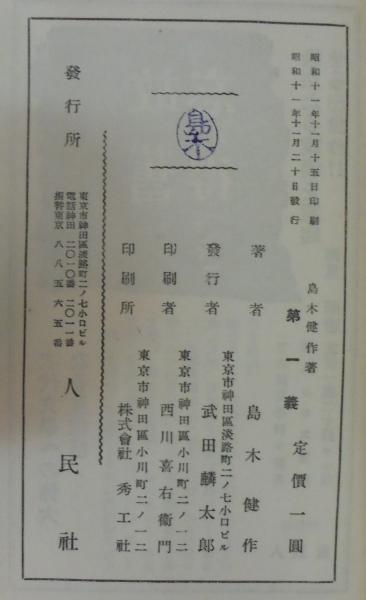 昭和十一年十一月十五日印刷
昭和十一年十一月二十日發行
島木健作著
第一義 定價一圓
著者 島木健作
東京市神田區淡路町二ノ七小口ビル
發行者 武田麟太郎
東京市神田區小川町二ノ一二
印刷者 西川喜右衞門
東京市神田區小川町二ノ一二
印刷所 株式會社 秀工社
島木
發行所
東京市神田區淡路町二ノ七小口ビル
電話神田 二〇一〇番 二〇一一番
振替東京 八八五六五番
人民社